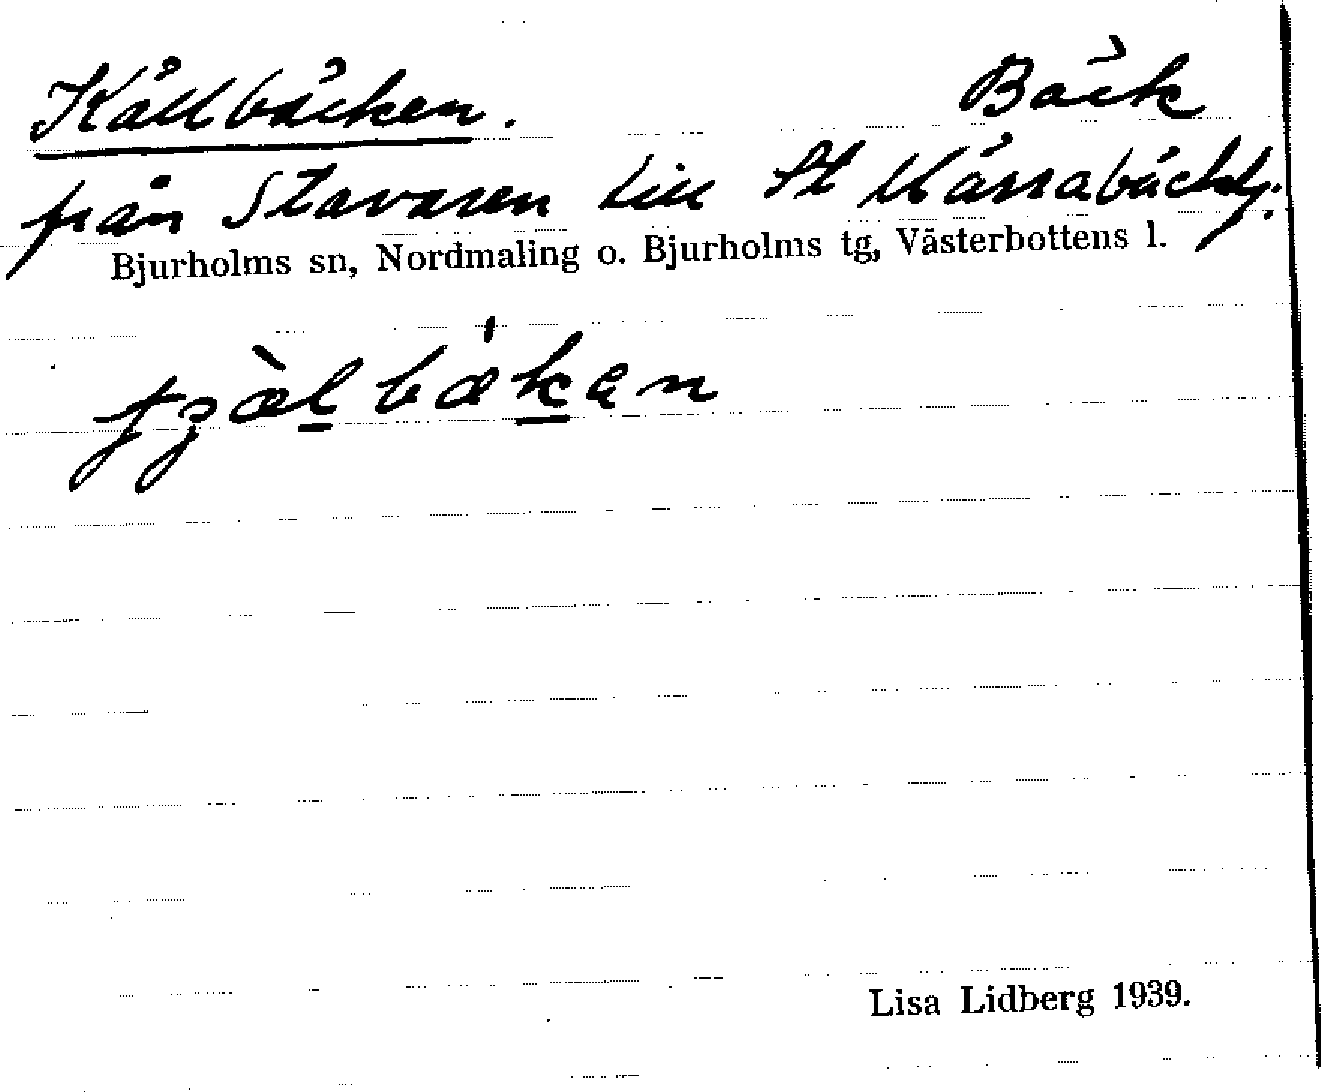 Källbäcken. Bäck
från Stavaren till St
Bjurholms sn, Nordmaling o. Bjurholms tg, Västerbottens l.
Lisa Lidberg 1939.